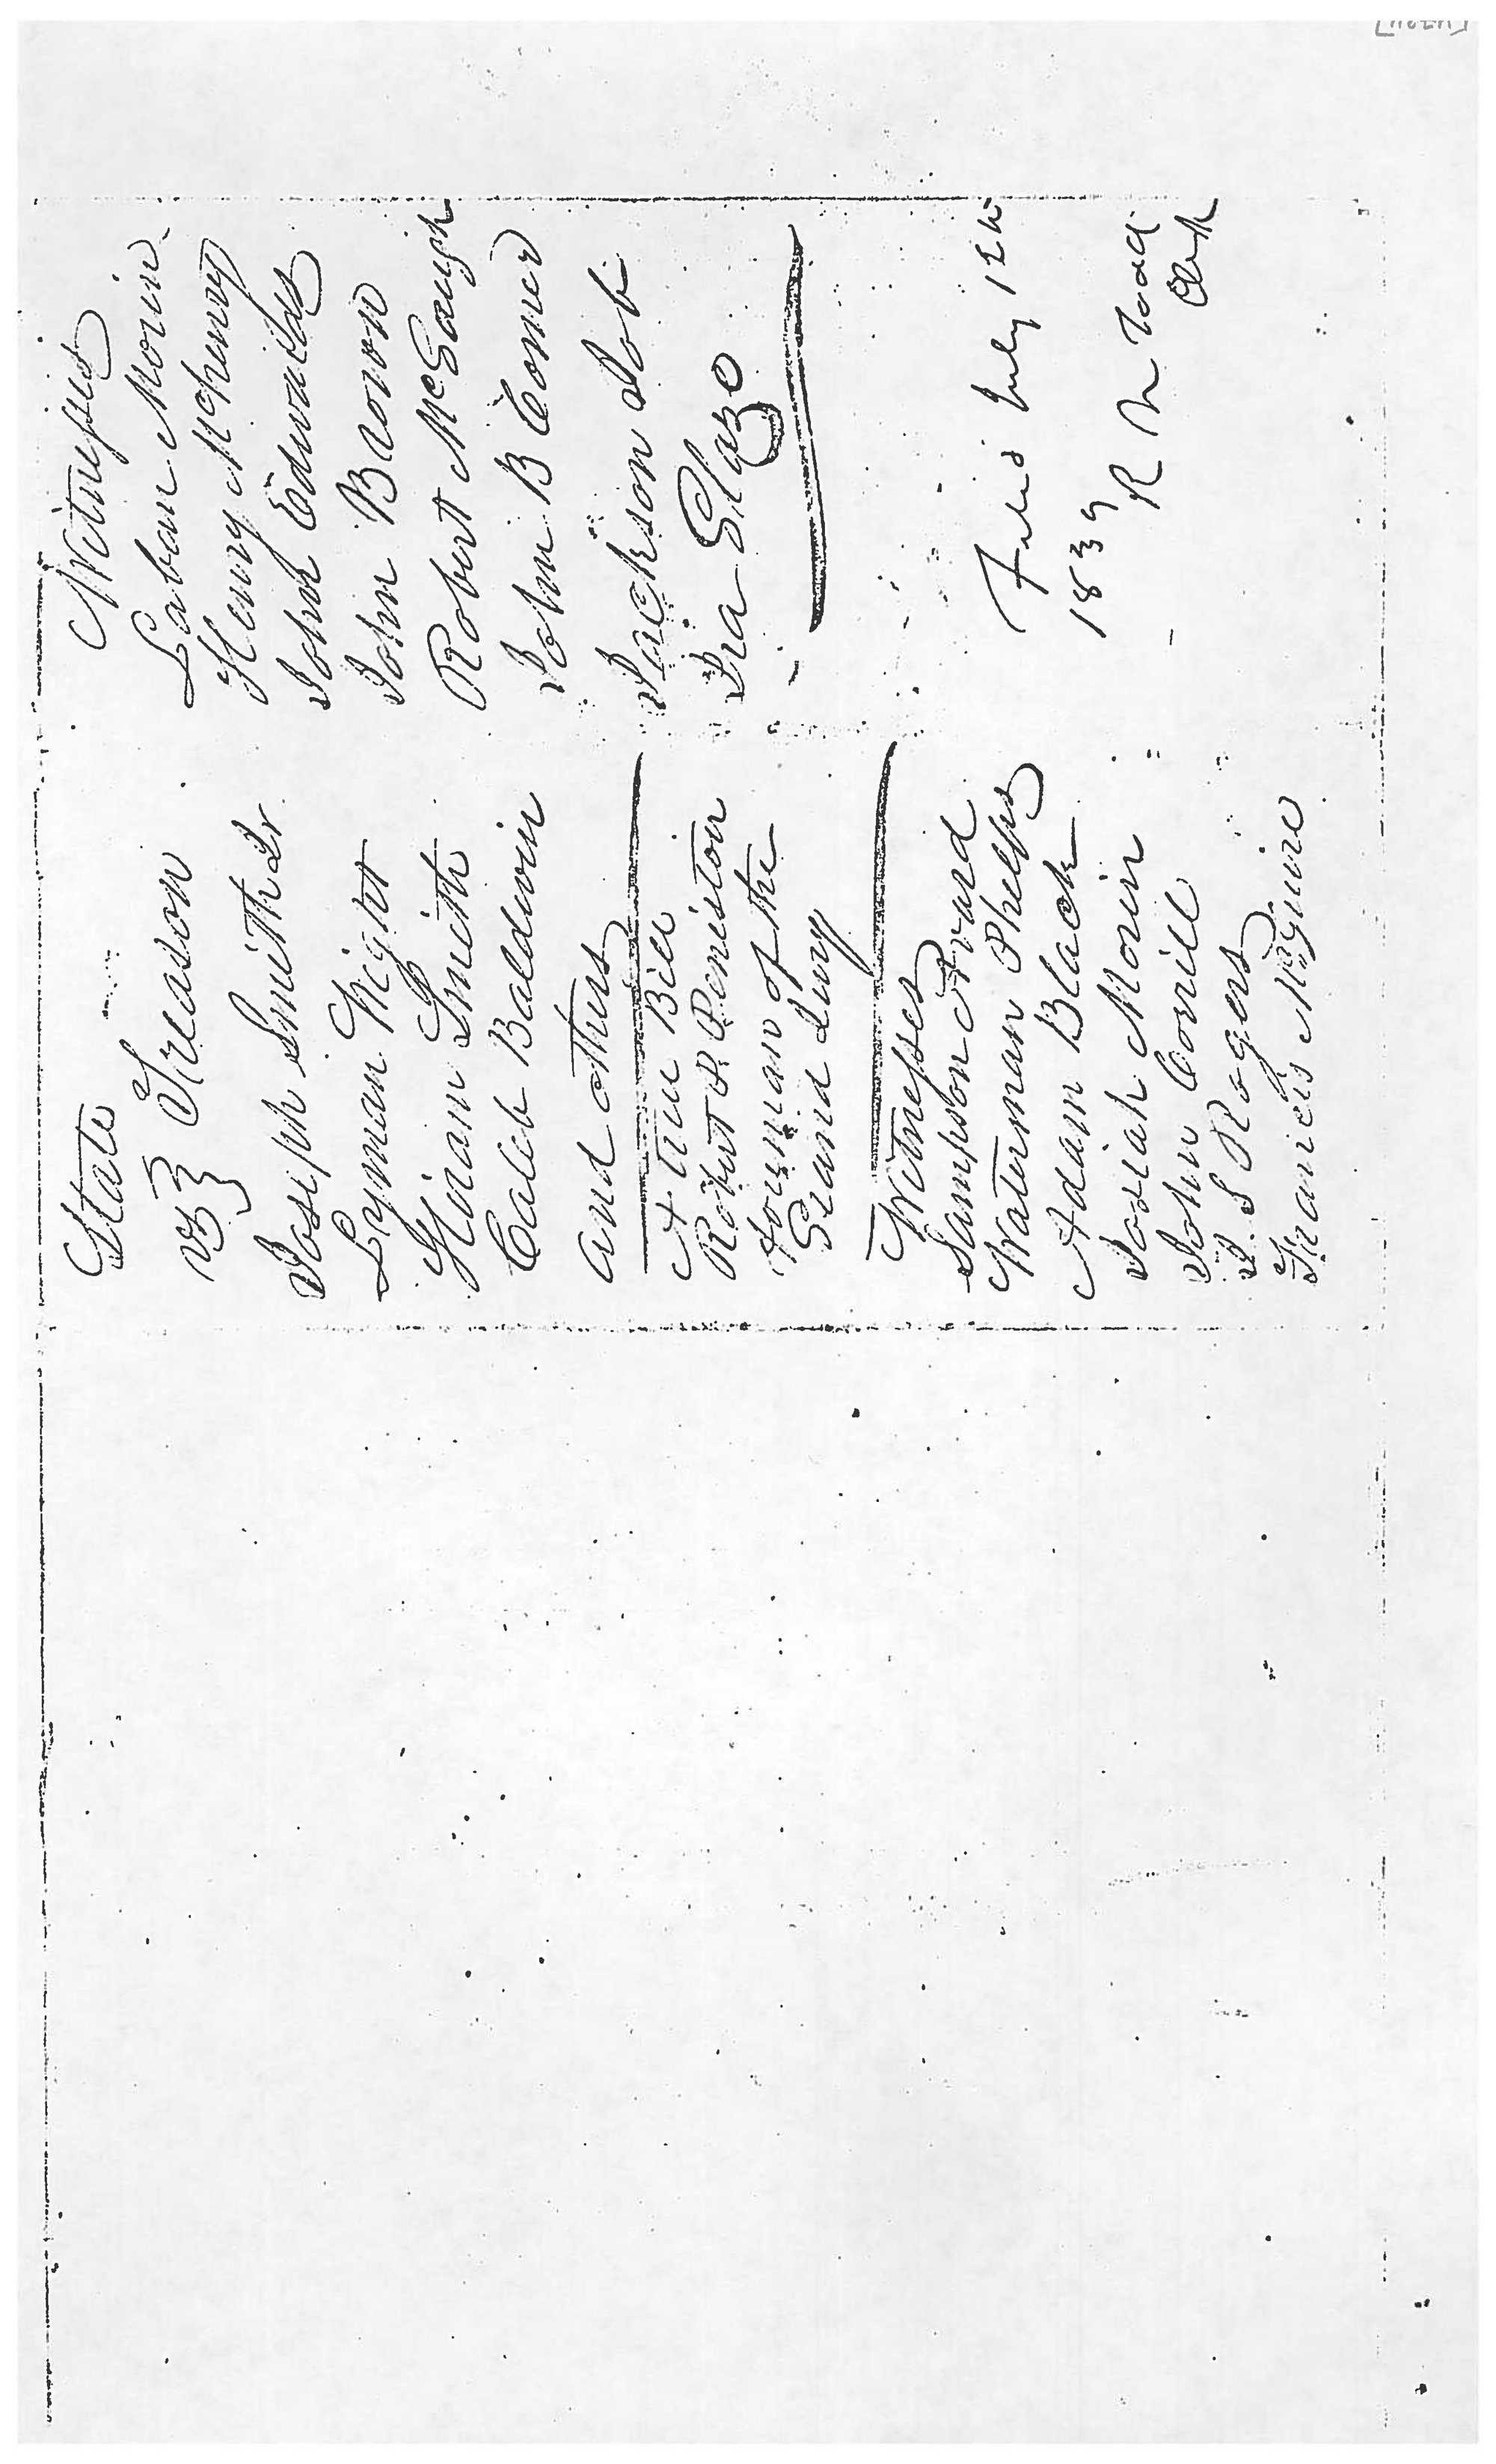 State
vs } Treason
Joseph Smith Jr.
Lyman Wight
Hiram Smith
Caleb Baldwin
and others
A true Bill
Robert P Peniston
foreman of the
Grand Jury
Witnesses
Sampson Avard
Waterman Phelps
Adam Black
Josiah Morin
John Corrill
J. S Rogers
Francis McGuire
Witnesses
Laban Morin
Henry McHenry
John Edwards
John Brown
Robert McGaugh
John B Comer
Jackson Job
Ira Glaze
Filed July 12th
1839
R M Todd
Clerk